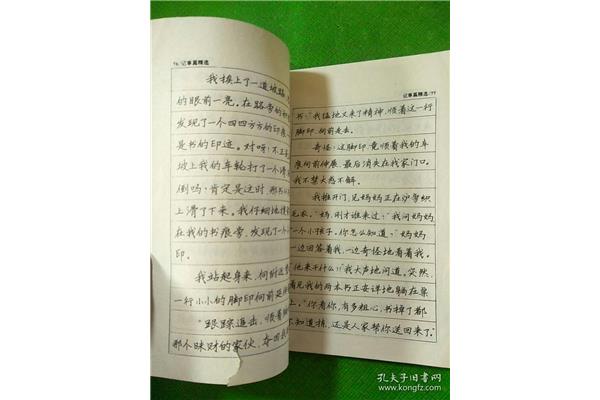 76/记事篇精选
我挨上了一道坡路
的眼前一亮,在路旁的
发现了一个四四方方的印痕
是书的印迹。对呀!不正是
坡上我的车轮打了一个滑
倒吗?肯定是这时,那书从
上滑了下来。我仔细地搜
在我的书痕旁,发现了一个小
印。
我站起身来,向附近
一行小小的脚印向前延
"跟踪追击,顺着脚
那个昧财的家伙,夺回我
记事篇精选/77
书。"我猛地又来了精神,顺着这一行
脚印,向前走去。
奇怪:这脚印,竟顺着我的车
痕向前伸展,最后消失在我家门口。
我不禁大惑不解。
我推开门,见妈妈正在炉旁织
毛衣。"妈,刚才谁来过?"我问妈妈
一个小孩子。你怎么知道?"妈妈
一边回答着我,一边奇怪地看着我。
他来干什么?!"我大声地问道。突然,
看见我的两本书正安详地躺在桌
上。"你看你,有多粗心,书掉了都
不知道捡,还是人家帮你送回来了。"
孔夫子旧书网
www.kongfz.com